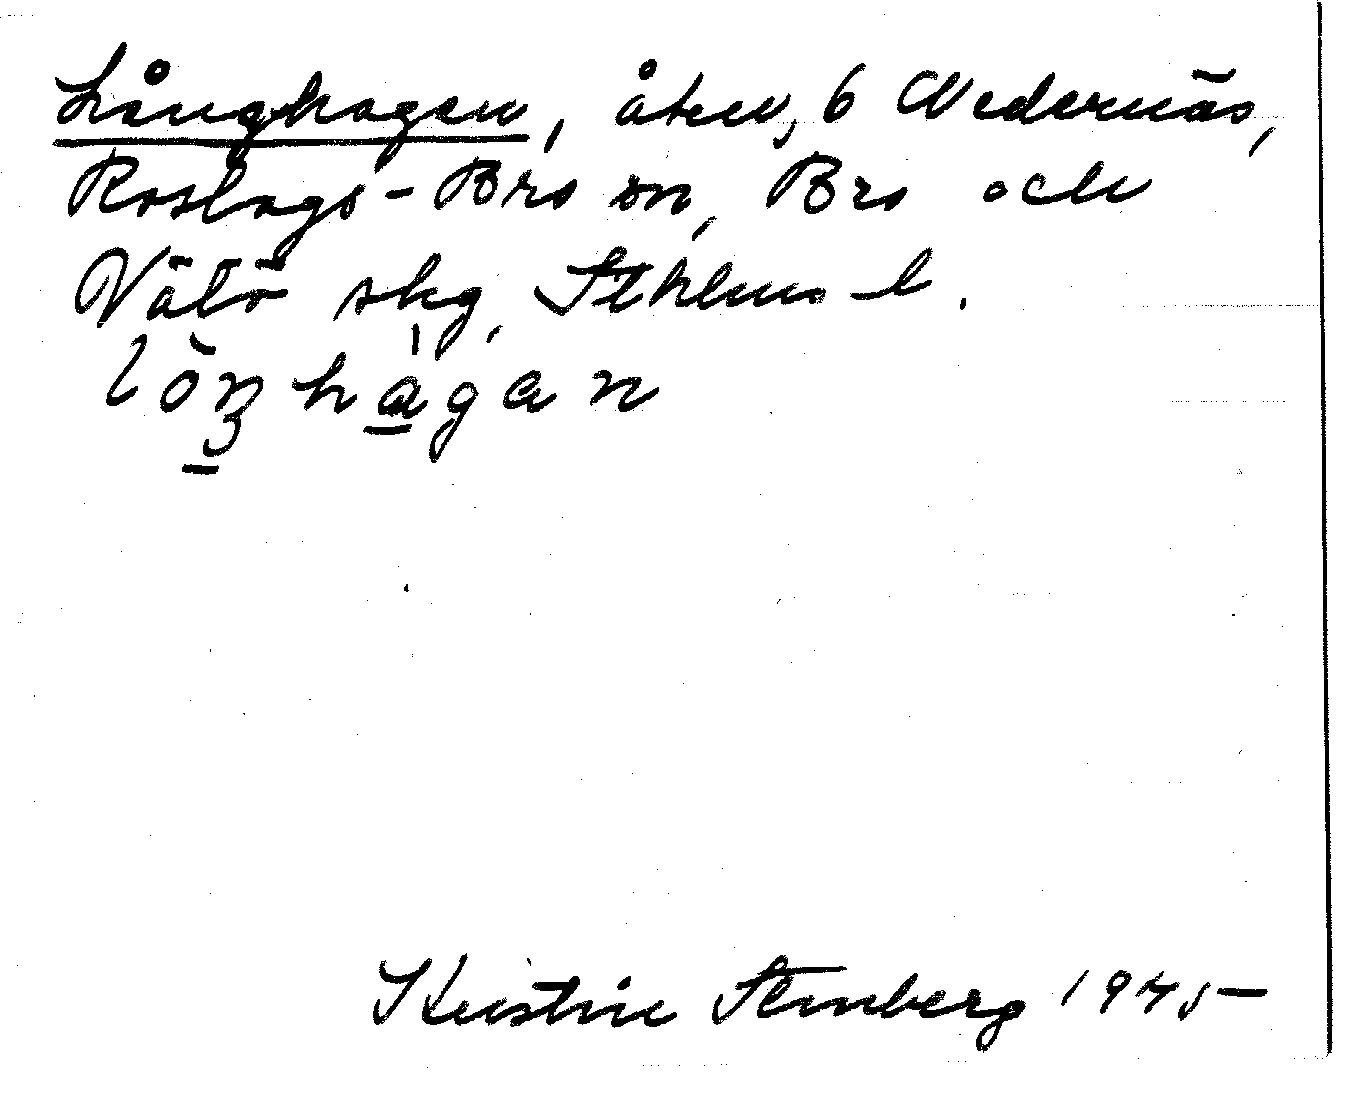 Långhagen, åker, 6 Nedernäs,
Roslags-Bro sn, Bro och
Vätö skg, Sthlms l.
loᷠŋhagan
Kerstin Stenberg 1945